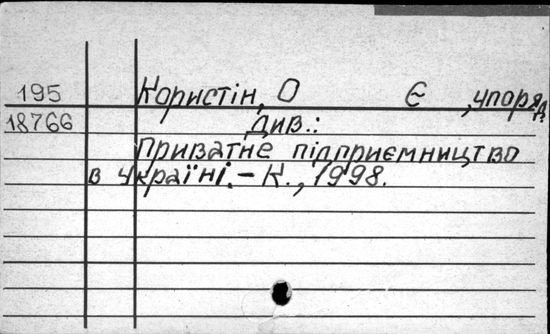 195 Користін, О Є , упоряд
18766 див.:
Приватне підприємництво
в Україні.–К., 1998.